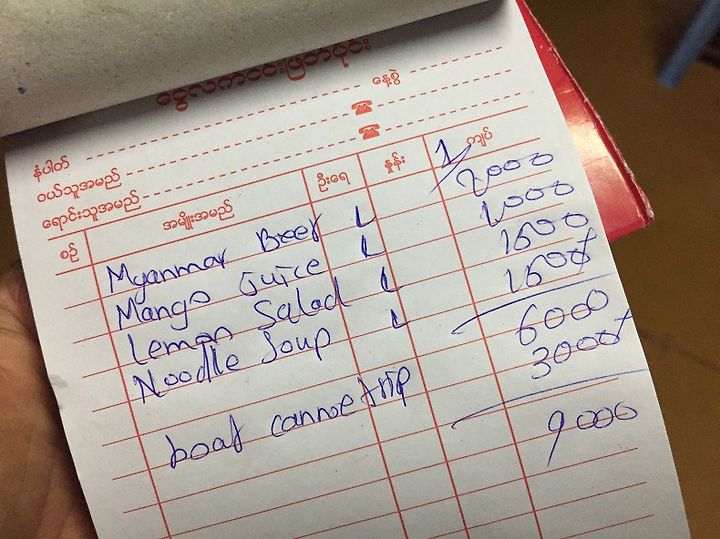 ငွေလက်ခံဖြတ်ပိုင်း
နေ့စွဲ
နံပါတ်
ဝယ်သူအမည်
ရောင်းသူအမည်
စဉ် အမျိုးအမည် ဦးရေ နှုန်း ကျပ်
Myanmar Beer 1 2000
Mango Juice 1 1000
Lemon Salad 1 1500
Noodle Soup 1 1500
6000
boat cannoe trip 3000
9000